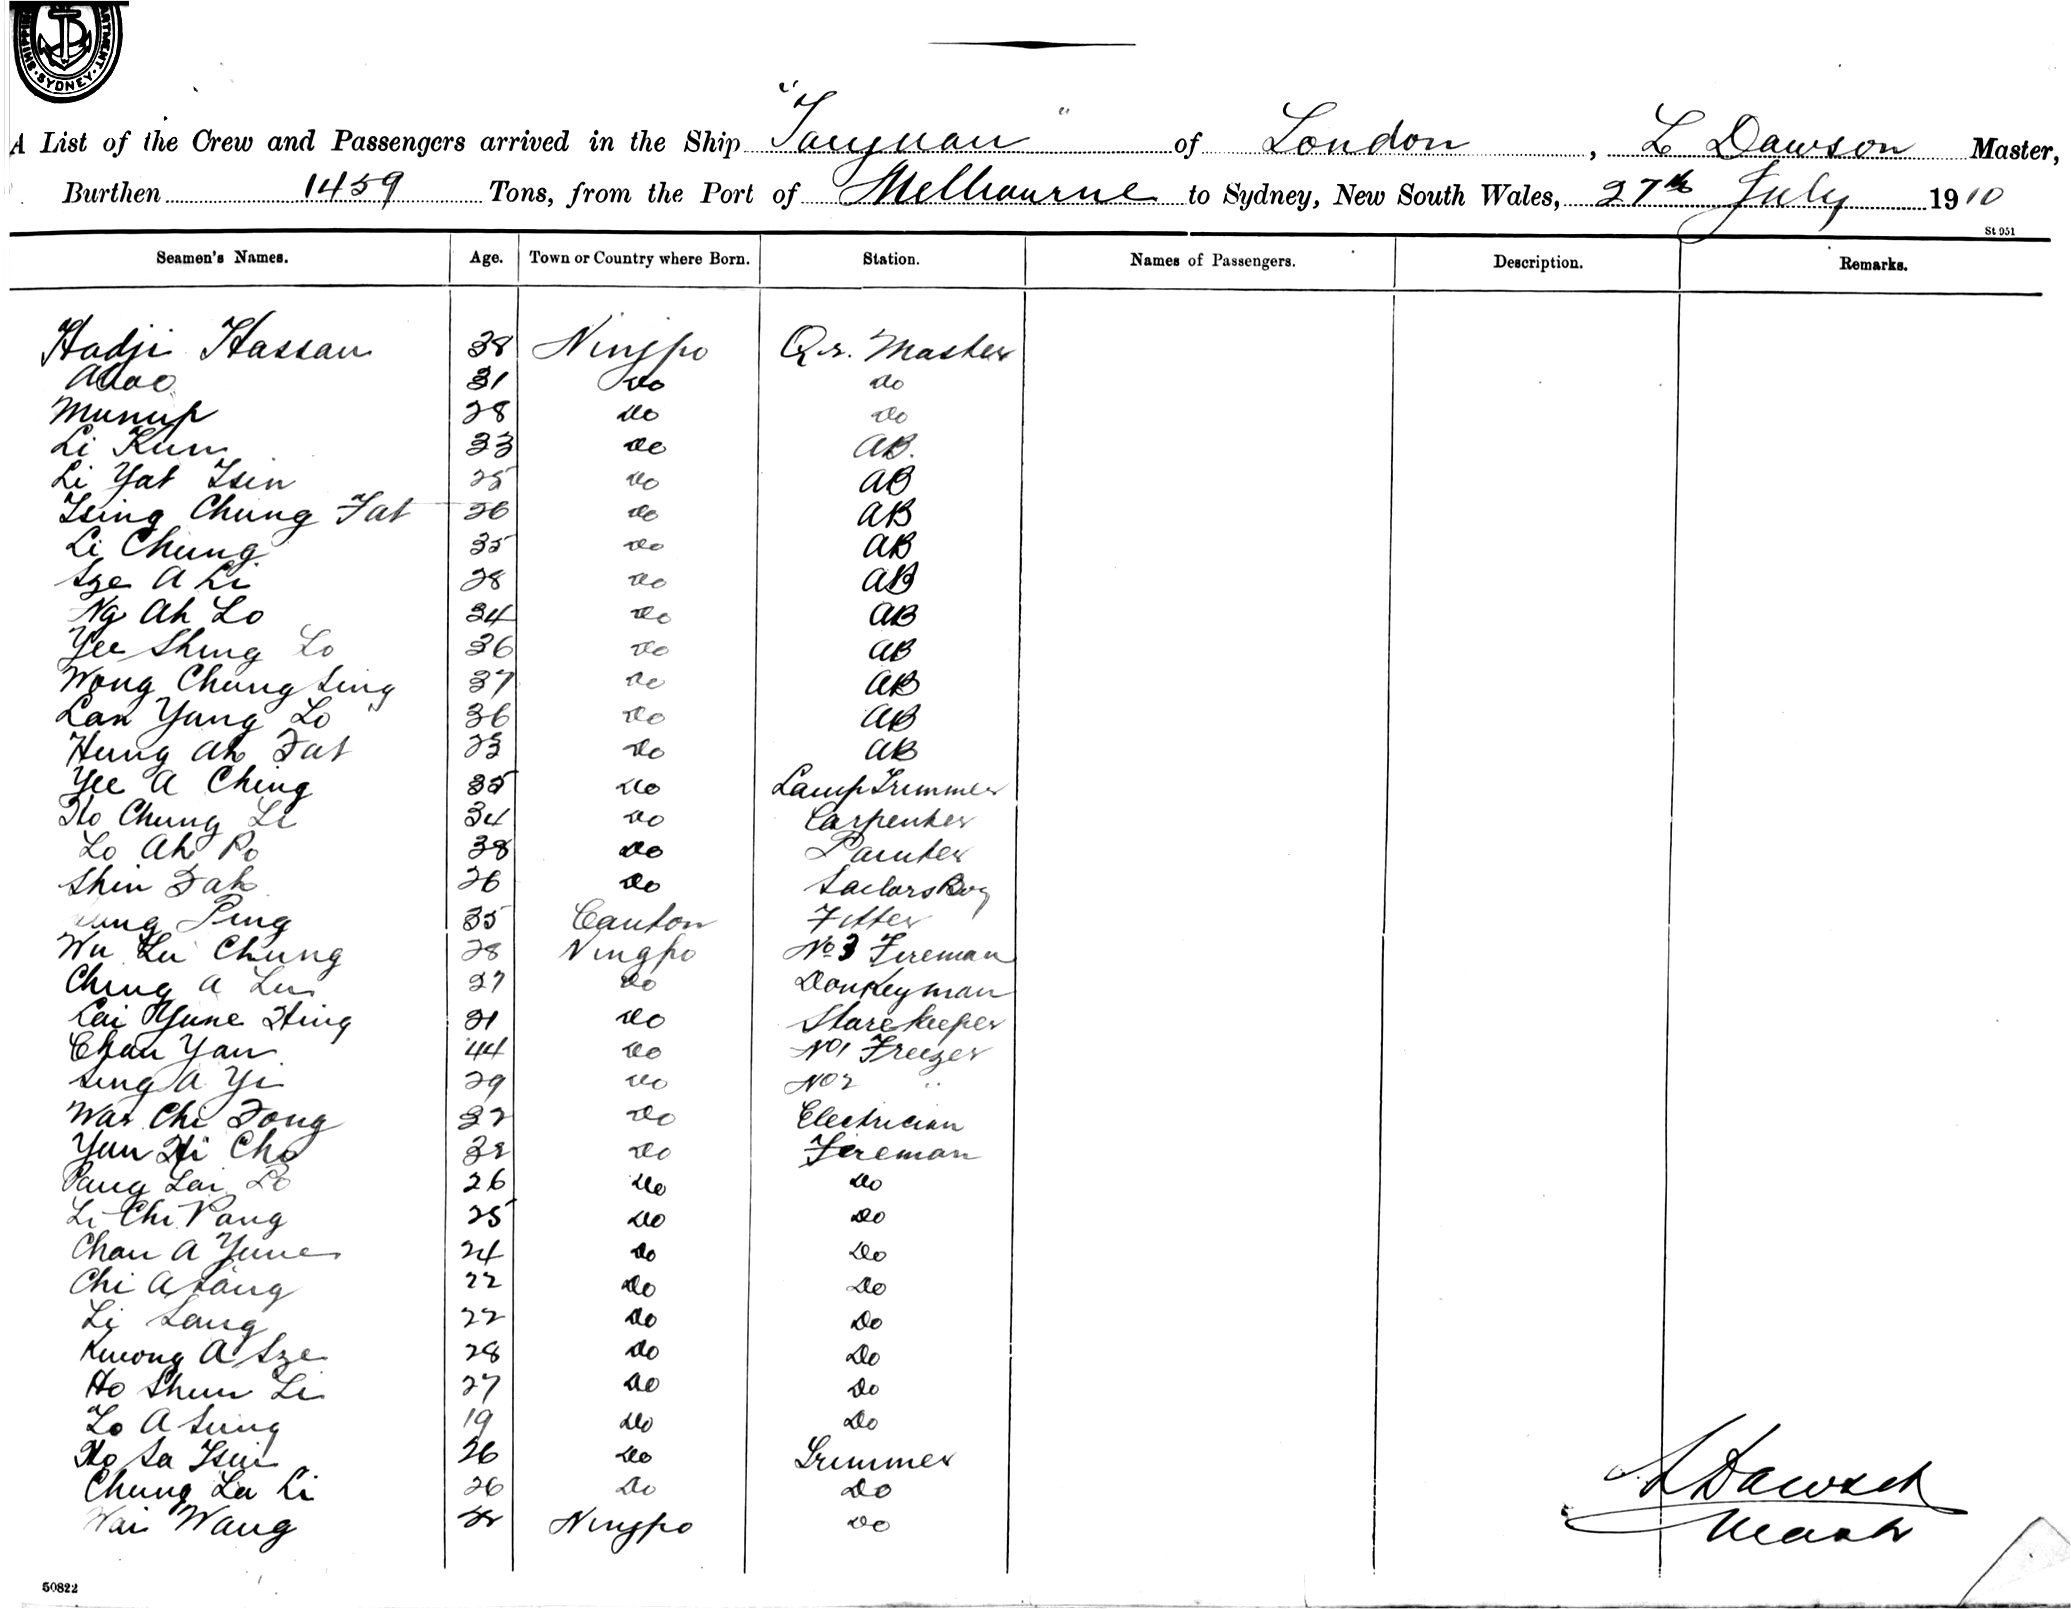 SHIPPING DEPARTMENT SYDNEY
A List of the Crew and Passengers arrived in the Ship "Taiyuan" of London, L Dawson Master,
Burthen 1459 Tons, from the Port of Melbourne to Sydney, New South Wales, 27th July 1910
St 951
Seamen's Names. Age. Town or Country where Born. Station. Names of Passengers. Description. Remarks.
Hadji Hassan 38 Ningpo Qr. Master
31 Do Do
Munup 28 Do Do
Li Kun 33 Do AB.
Li Yat Tsin 25 Do AB
Tsing Chung Fat 26 Do AB
Li Chung 35 Do AB
Sze A Li 28 Do AB
Ng Ah Lo 34 Do AB
Yee Shing Lo 36 Do AB
Wong Chung Sing 37 Do AB
Lan Yang Lo 36 Do AB
Hung Ah Fat 23 Do AB
Yee A Ching 35 Do Lamp Trimmer
Ho Chung Li 34 Do Carpenter
Lo Ah Po 38 Do Painter
Shin Fah 26 Do Sailors Boy
Ping 35 Canton Fitter
Wu Lu Chung 28 Ningpo No 3 Fireman
Ching A Lu 27 Do Donkeyman
Lai Yune Hing 21 Do Storekeeper
Chan Yan 44 Do No 1 Freezer
Sing A Yi 29 Do No 2 "
Wai Chi Fong 32 Do Electrician
Yun Hi Cho 32 Do Fireman
Pang Lai Lo 26 Do Do
Li Chi Pang 25 Do Do
Chan A Yune 24 Do Do
Chi A Sang 22 Do Do
Li Sang 22 Do Do
Kwong A Sze 28 Do Do
Ho Shun Li 27 Do Do
Lo A Sung 19 Do Do
Ho Sa Tsui 26 Do Trimmer
Chung La Li 26 Do Do
Wai Wang Ningpo Do
L Dawson
Master
50822